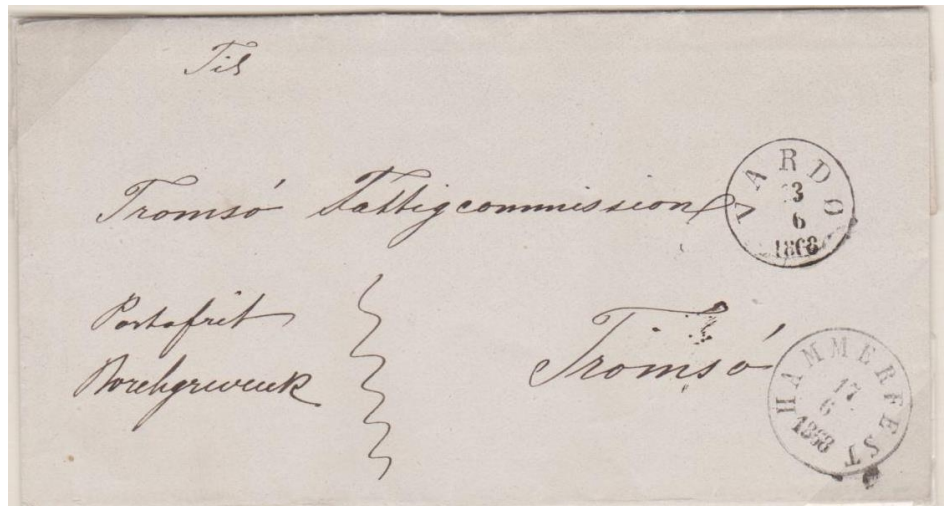 Til
Tromsó Fattigcommission
VARDØ
13
6
1868
Portofrit
Borchgrevink
Tromsó
HAMMERFEST
17
6
1868